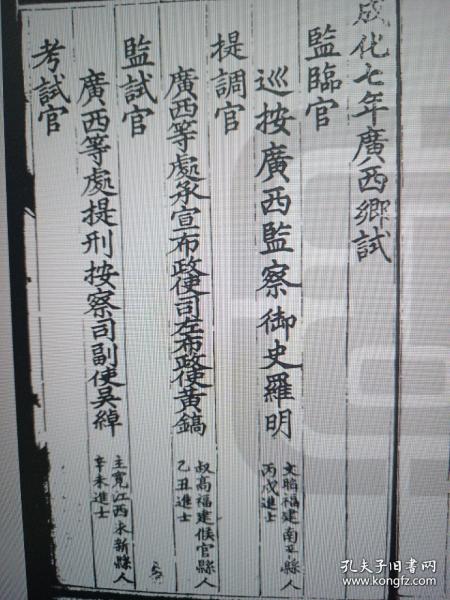 成化七年廣西鄉試
監臨官
巡按廣西監察御史羅明
文昭福建南平縣人
丙戌進士
提調官
廣西等處承宣布政使司左布政使黃鎬
叔高福建侯官縣人
乙丑進士
監試官
廣西等處提刑按察司副使吳綽
主寬江西永新縣人
辛未進士
考試官
孔夫子旧书网
www.kongfz.com